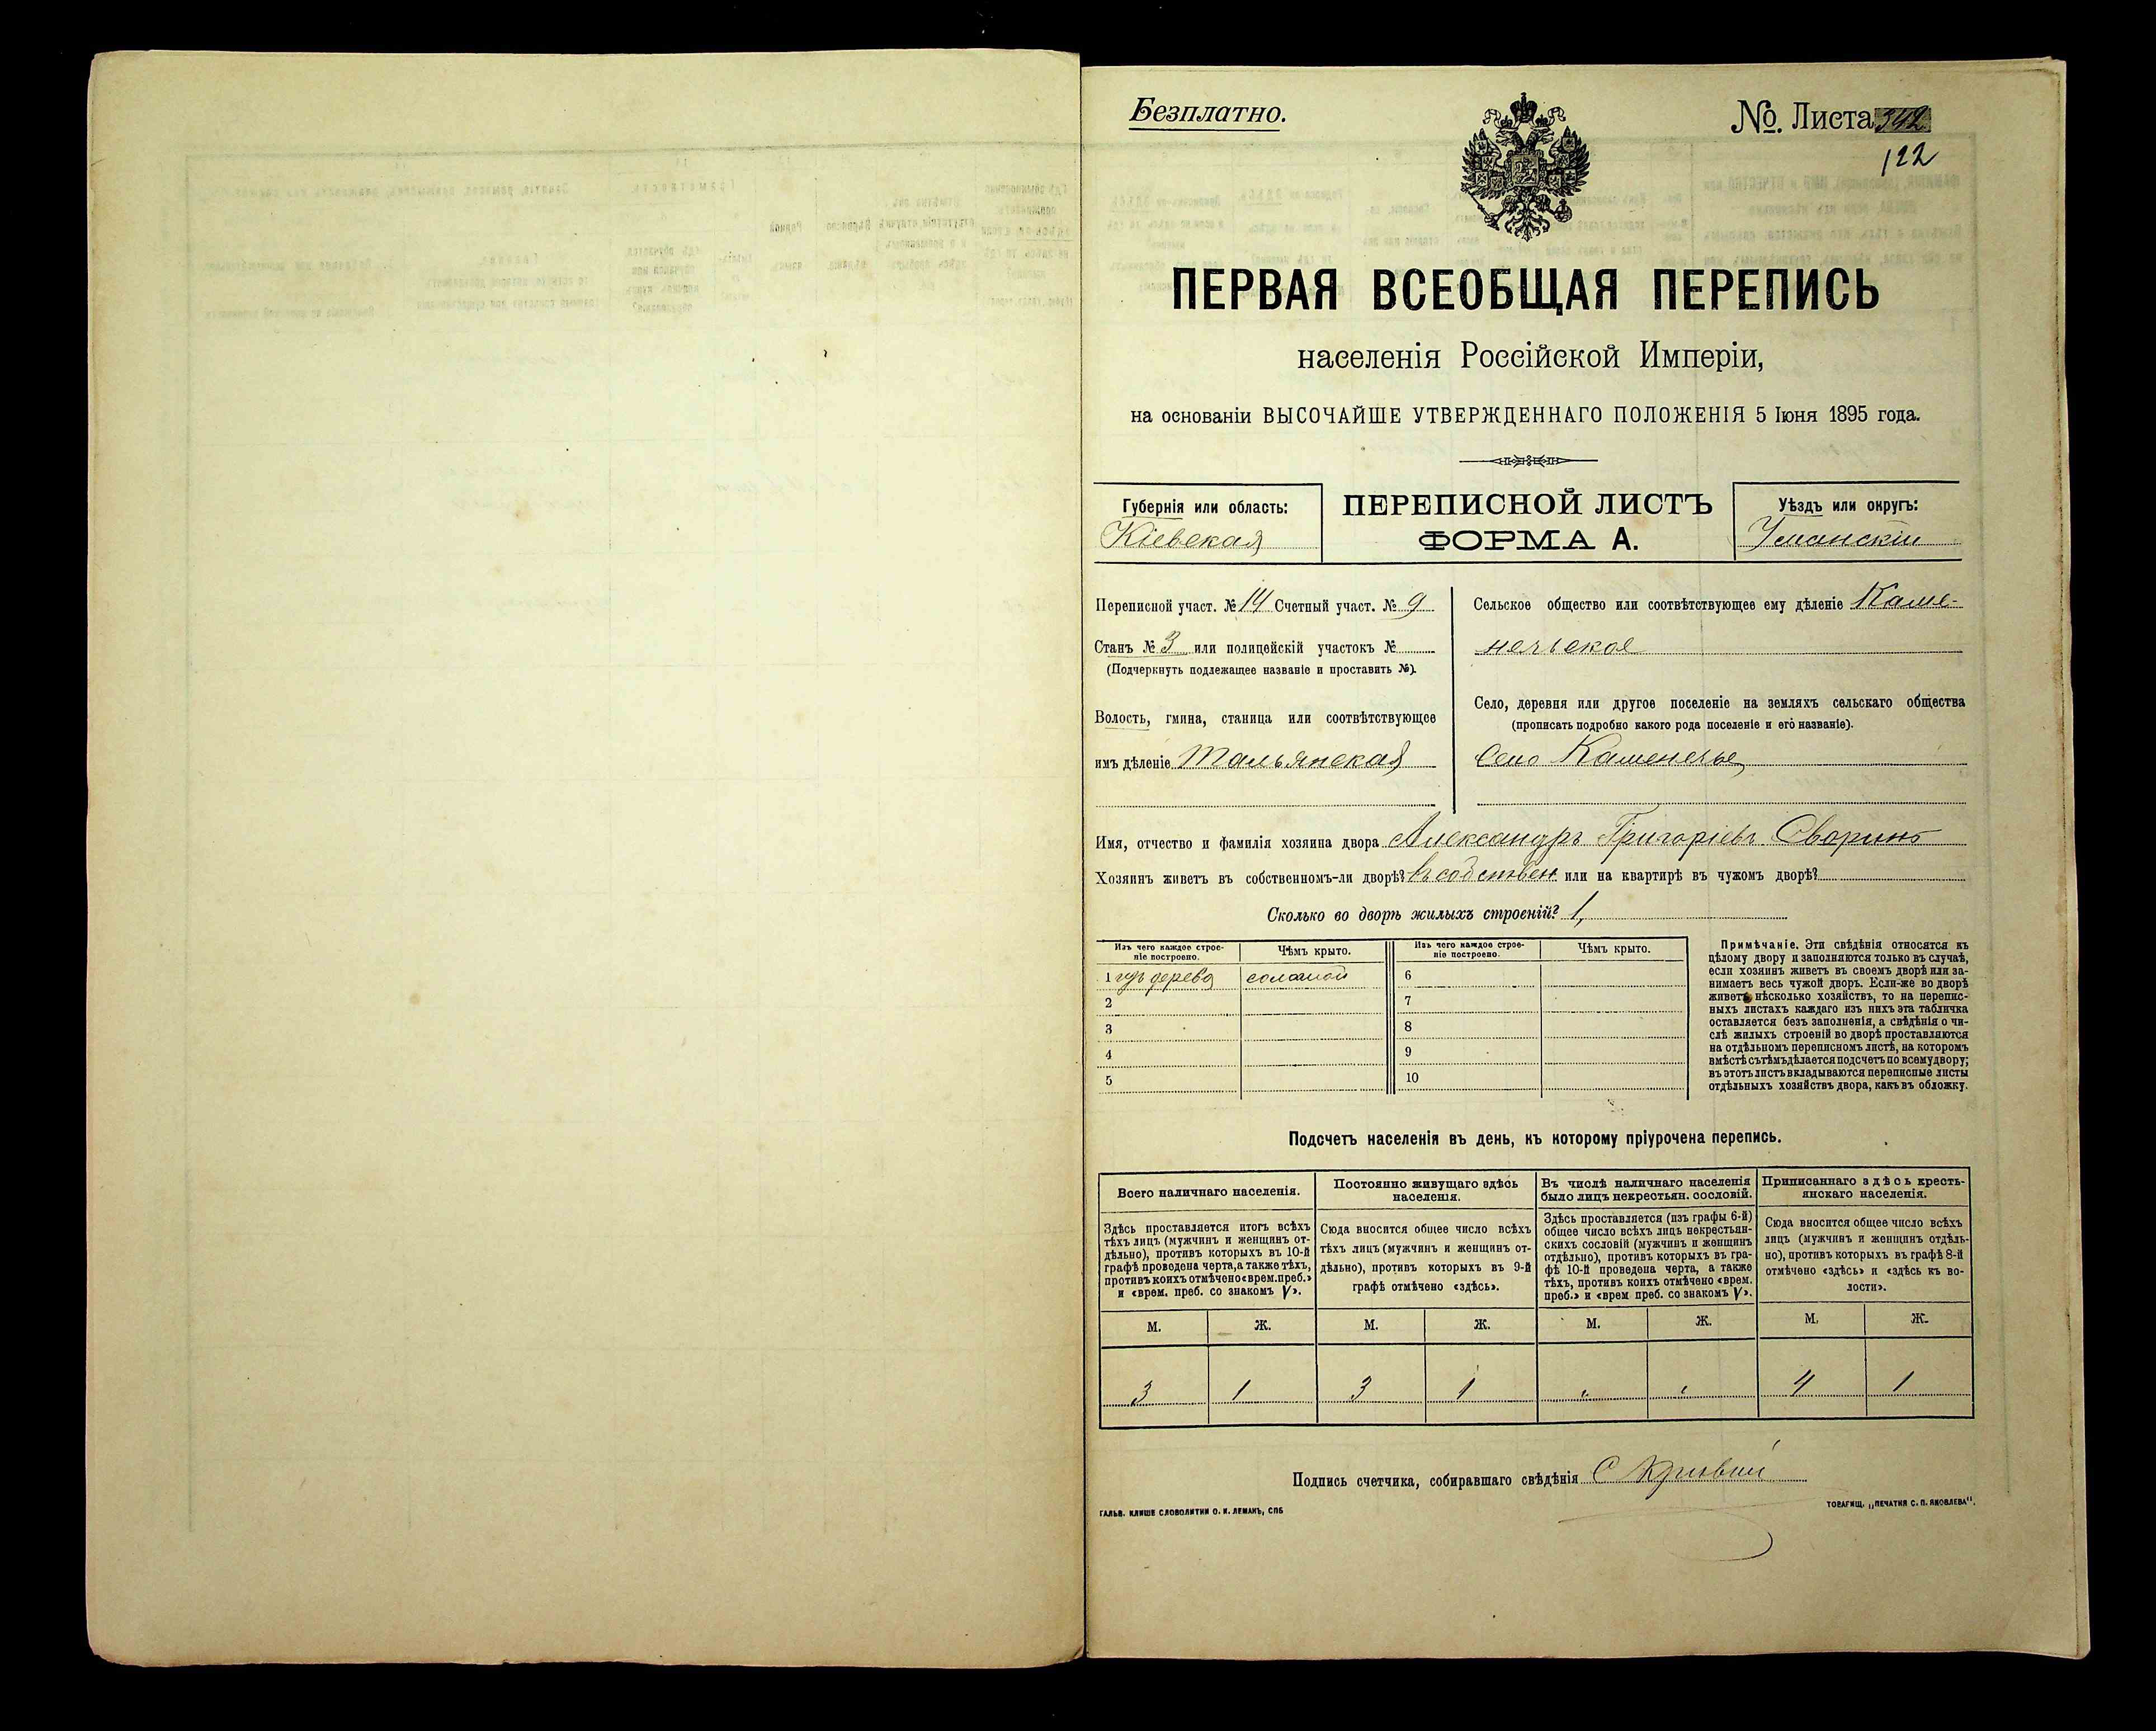 Безплатно.
№. Листа 342
122
ПЕРВАЯ ВСЕОБЩАЯ ПЕРЕПИСЬ
населенія Россійской Имперіи,
на основаніи ВЫСОЧАЙШЕ УТВЕРЖДЕННАГО ПОЛОЖЕНІЯ 5 Іюня 1895 года.
Губернія или область:
Кіевская
ПЕРЕПИСНОЙ ЛИСТЪ
ФОРМА А.
Уѣздъ или округъ:
Уманскій
Переписной участ. № 14 Счетный участ. № 9
Станъ № 3 или полицейскій участокъ №
(Подчеркнуть подлежащее названіе и проставить №).
Волость, гмина, станица или соотвѣтствующее
имъ дѣленіе Тальянская
Сельское общество или соотвѣтствующее ему дѣленіе Каме-
нечьское
Село, деревня или другое поселеніе на земляхъ сельскаго общества
(прописать подробно какого рода поселеніе и его названіе).
Село Каменечье
Имя, отчество и фамилія хозяина двора Александръ Григоріевъ Сваринъ
Хозяинъ живетъ въ собственномъ-ли дворѣ? въ собствен или на квартирѣ въ чужомъ дворѣ?
Сколько во дворѣ жилыхъ строеній? 1,
Изъ чего каждое строе-
ніе построено.
Чѣмъ крыто.
Изъ чего каждое строе-
ніе построено.
Чѣмъ крыто.
1 изъ дерева соломой 6
2 7
3 8
4 9
5 10
Примѣчаніе. Эти свѣдѣнія относятся къ
цѣлому двору и заполняются только въ случаѣ,
если хозяинъ живетъ въ своемъ дворѣ или за-
нимаетъ весь чужой дворъ. Если-же во дворѣ
живетъ нѣсколько хозяйствъ, то на перепис-
ныхъ листахъ каждаго изъ нихъ эта табличка
оставляется безъ заполненія, а свѣдѣнія о чи-
слѣ жилыхъ строеній во дворѣ проставляются
на отдѣльномъ переписномъ листѣ, на которомъ
вмѣстѣ съ тѣмъ дѣлается подсчетъ по всему двору;
въ этотъ листъ вкладываются переписные листы
отдѣльныхъ хозяйствъ двора, какъ въ обложку.
Подсчетъ населенія въ день, къ которому пріурочена перепись.
Всего наличнаго населенія.
Здѣсь проставляется итогъ всѣхъ
тѣхъ лицъ (мужчинъ и женщинъ от-
дѣльно), противъ которыхъ въ 10-й
графѣ проведена черта, а также тѣхъ,
противъ коихъ отмѣчено «врем. преб.»
и «врем. преб. со знакомъ V».
Постоянно живущаго здѣсь
населенія.
Сюда вносится общее число всѣхъ
тѣхъ лицъ (мужчинъ и женщинъ от-
дѣльно), противъ которыхъ въ 9-й
графѣ отмѣчено «здѣсь».
Въ числѣ наличнаго населенія
было лицъ некрестьян. сословій.
Здѣсь проставляется (изъ графы 6-й)
общее число всѣхъ лицъ некрестьян-
скихъ сословій (мужчинъ и женщинъ
отдѣльно), противъ которыхъ въ гра-
фѣ 10-й проведена черта, а также
тѣхъ, противъ коихъ отмѣчено «врем.
преб.» и «врем преб. со знакомъ V».
Приписаннаго здѣсь кресть-
янскаго населенія.
Сюда вносится общее число всѣхъ
лицъ (мужчинъ и женщинъ отдѣль-
но), противъ которыхъ въ графѣ 8-й
отмѣчено «здѣсь» и «здѣсь къ во-
лости».
М. Ж. М. Ж. М. Ж. М. Ж.
3 1 3 1 " " 4 1
Подпись счетчика, собиравшаго свѣдѣнія С Кривий
ГАЛЬВ. КЛИШЕ СЛОВОЛИТНИ О. И. ЛЕМАНЪ, СПБ
ТОВАРИЩ. „ПЕЧАТНЯ С. П. ЯКОВЛЕВА".